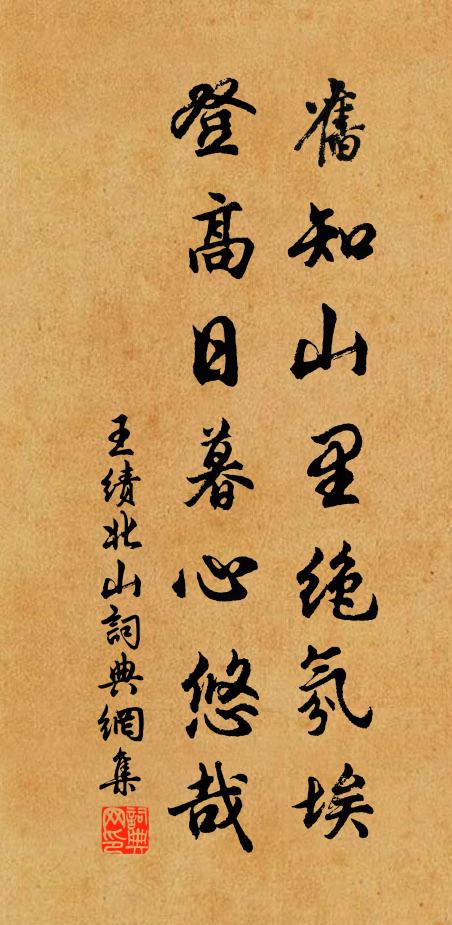 舊知山里絶氛埃
登高日暮心悠哉
王績北山詞典網集
詞典网印